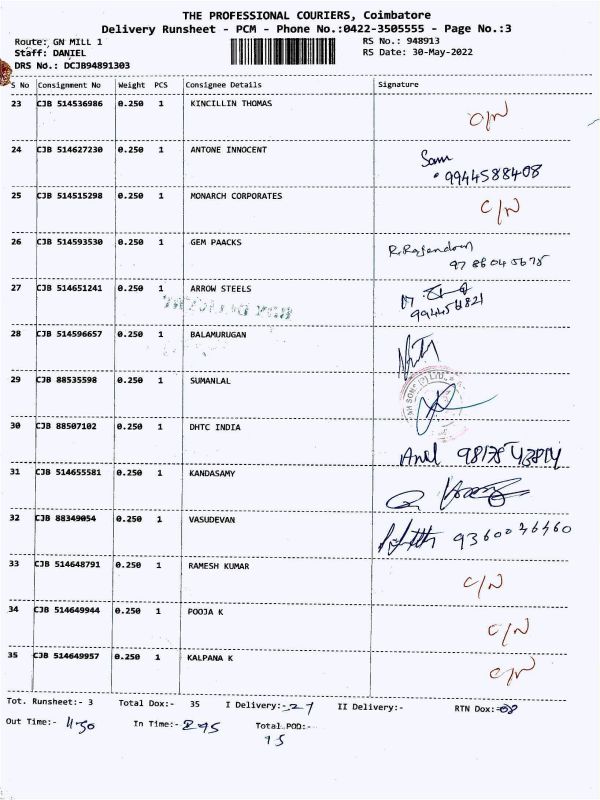 THE PROFESSIONAL COURIERS, Coimbatore
Delivery Runsheet - PCM - Phone No.:0422-3505555 - Page No.:3
Route: GN MILL 1 RS No.: 948913
Staff: DANIEL RS Date: 30-May-2022
DRS No.: DCJB94891303
S No Consignment No Weight PCS Consignee Details Signature
23 CJB 514536986 0.250 1 KINCILLIN THOMAS C/N
24 CJB 514627230 0.250 1 ANTONE INNOCENT Sam
9944588408
25 CJB 514515298 0.250 1 MONARCH CORPORATES C/N
26 CJB 514593530 0.250 1 GEM PAACKS R.Rajendran
97 86 04 5675
27 CJB 514651241 0.250 1 ARROW STEELS
994456821
28 CJB 514596657 0.250 1 BALAMURUGAN
29 CJB 88535598 0.250 1 SUMANLAL
30 CJB 88507102 0.250 1 DHTC INDIA
31 CJB 514655581 0.250 1 KANDASAMY
32 CJB 88349054 0.250 1 VASUDEVAN
33 CJB 514648791 0.250 1 RAMESH KUMAR C/N
34 CJB 514649944 0.250 1 POOJA K C/N
35 CJB 514649957 0.250 1 KALPANA K C/N
Tot. Runsheet:- 3 Total Dox:- 35 I Delivery:- 27 II Delivery:- RTN Dox:- 08
Out Time:- 11-50 In Time:- Total POD:-
15